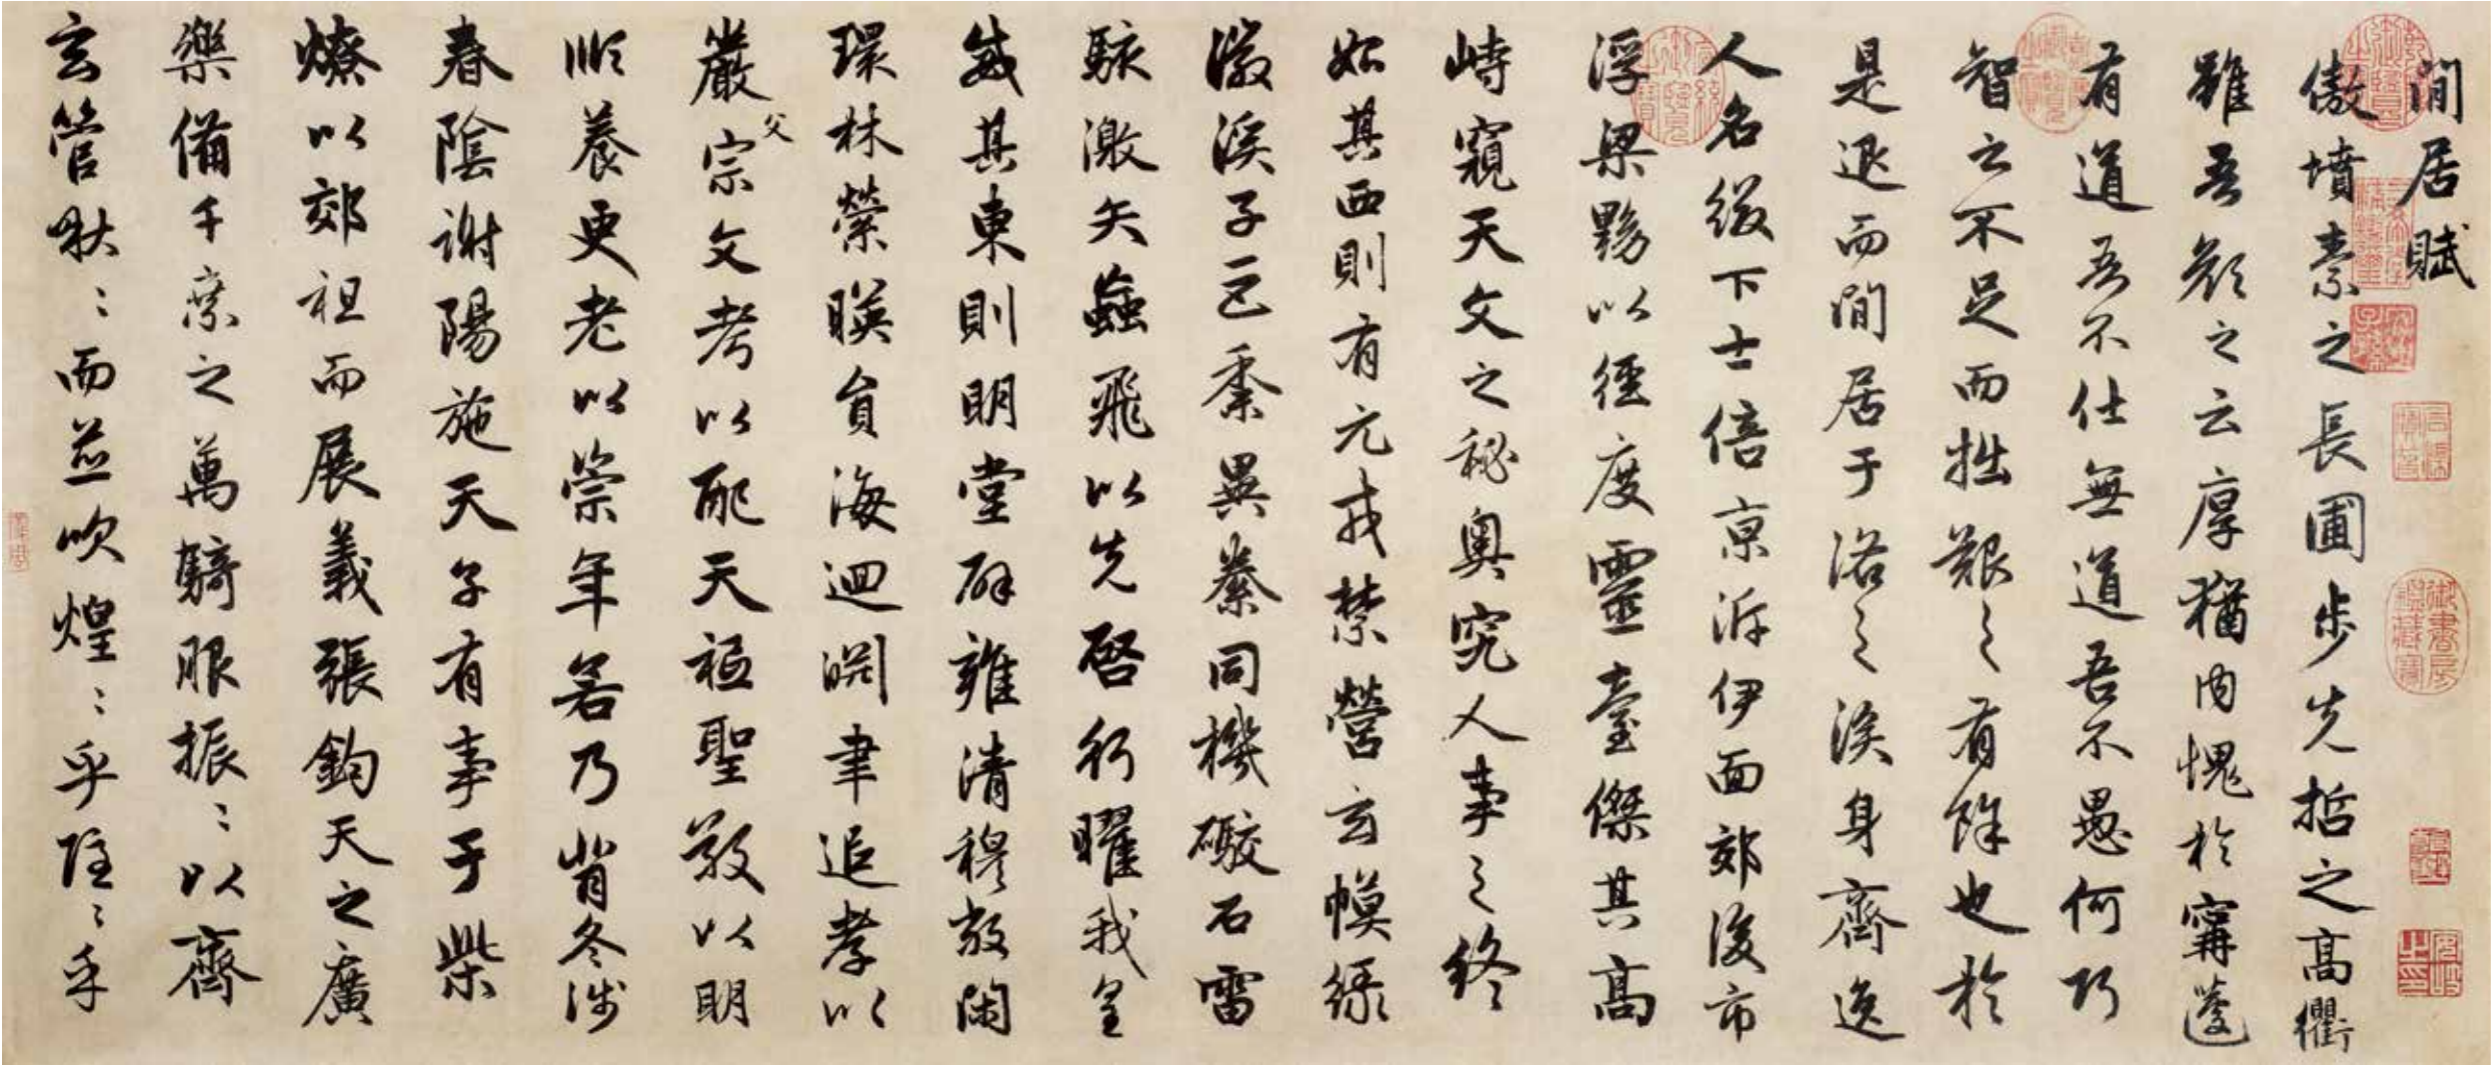 閒居賦
傲墳素之長圃步先哲之高衢
雖吾顏之云厚猶内愧於甯蘧
有道吾不仕無道吾不愚何巧
智之不足而拙艱之有餘也於
是退而閒居于洛之涘身齊逸
人名綴下士倍京泝伊面郊後市
浮梁黝以徑度靈臺傑其高
峙窺天文之秘奥究人事之終
始其西則有元戎禁營玄幙綠
徽溪子巨黍異絭同機礮石雷
駭激矢蝱飛以先啓行曜我皇
威其東則明堂辟雍清穆敞閑
環林縈暎員海迴淵聿追孝以
嚴父宗文考以配天祗聖敬以明
順養更老以崇年若乃背冬涉
春陰謝陽施天子有事于柴
燎以郊祖而展義張鈞天之廣
樂備千乘之萬騎服振〻以齊
玄管啾〻而並吹煌〻乎隱〻乎